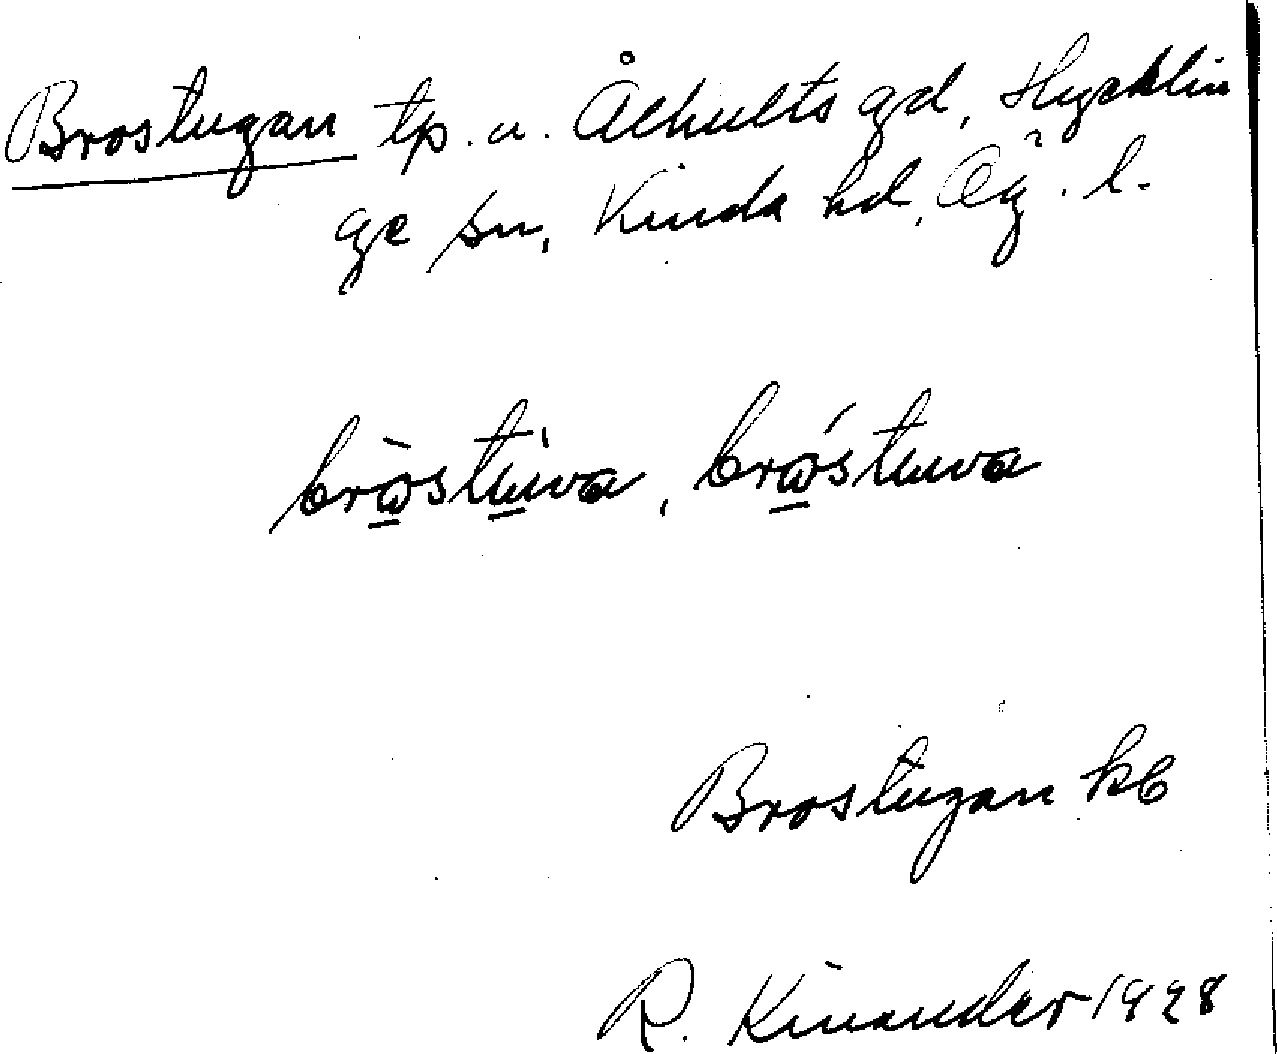 Brostugan tp. u. Ålhults gd, Hycklin
ge sn, Kinda hd, Ög. l.
bròstùwa, bróstuwa
Brostugan kb
R. Kinander 1928